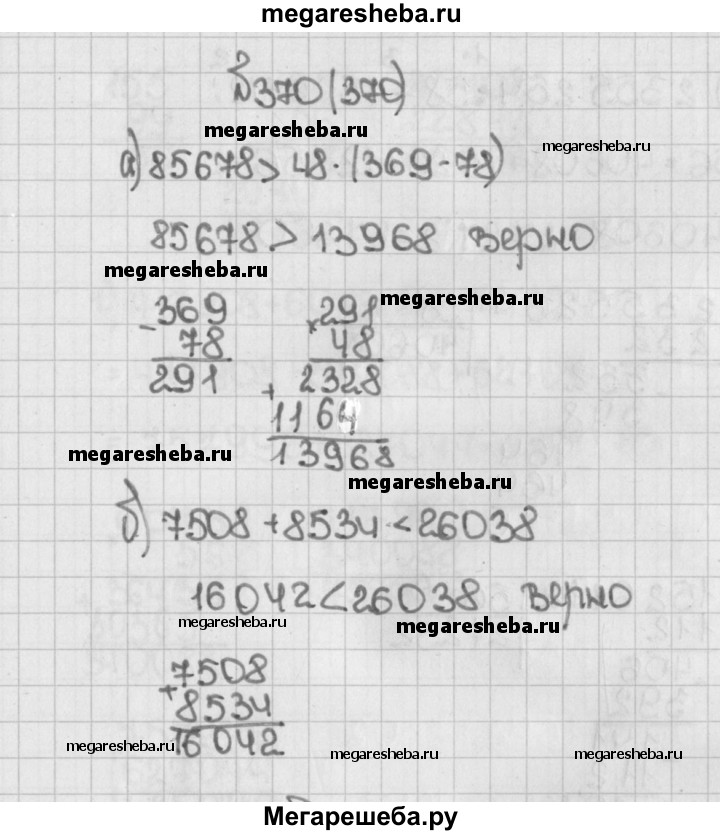 megaresheba.ru
№370(370)
megaresheba.ru
megaresheba.ru
а) 85678 > 48·(369-78)
85678 > 13968 верно
megaresheba.ru
megaresheba.ru
369 291
- 78 × 48
291 2328
+ 1164
13968
megaresheba.ru
megaresheba.ru
б) 7508 + 8534 < 26038
16042 < 26038 верно
megaresheba.ru
megaresheba.ru
7508
+ 8534
16042
megaresheba.ru
megaresheba.ru
megaresheba.ru
Мегарешеба.ру